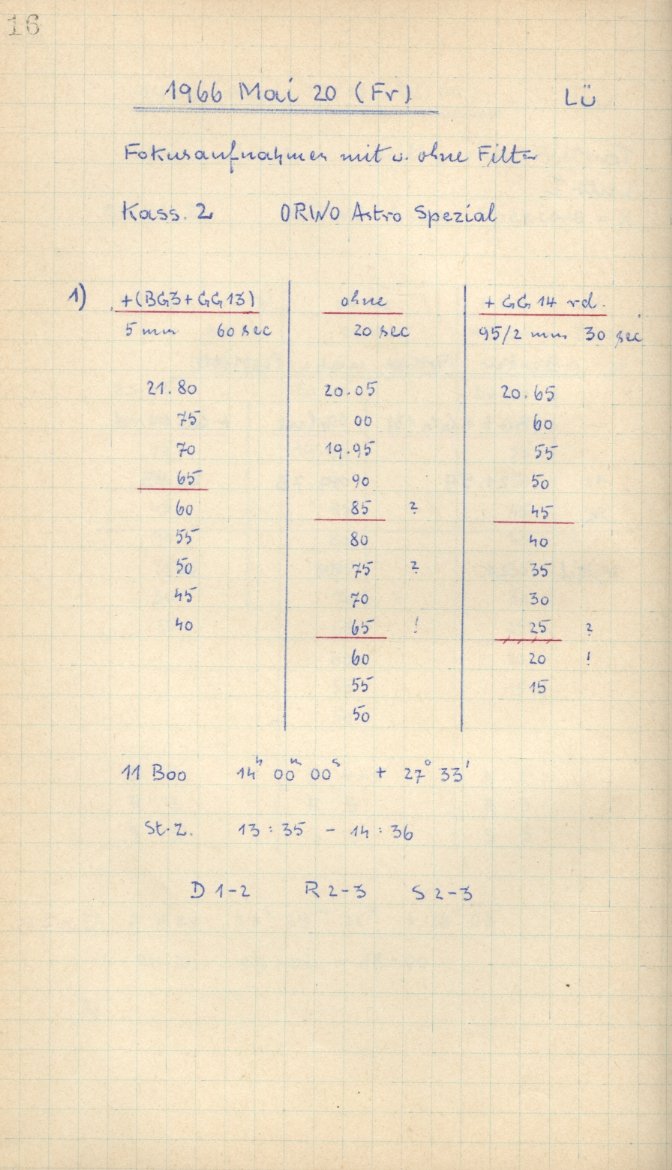 16
1966 Mai 20 (Fr) Lü
Fokusaufnahmen mit u. ohne Filter
Kass. 2 ORWO Astro Spezial
1) +(BG3+GG13) ohne + GG 14 rd.
5 mm 60 sec 20 sec 95/2 mm 30 sec
21.80 20.05 20.65
75 00 60
70 19.95 55
65 90 50
60 85 ? 45
55 80 40
50 75 ? 35
45 70 30
40 65 ! 25 ?
60 20 !
55 15
50
11 Boo 14h 00m 00s + 27° 33'
St.Z. 13:35 - 14:36
D 1-2 R 2-3 S 2-3